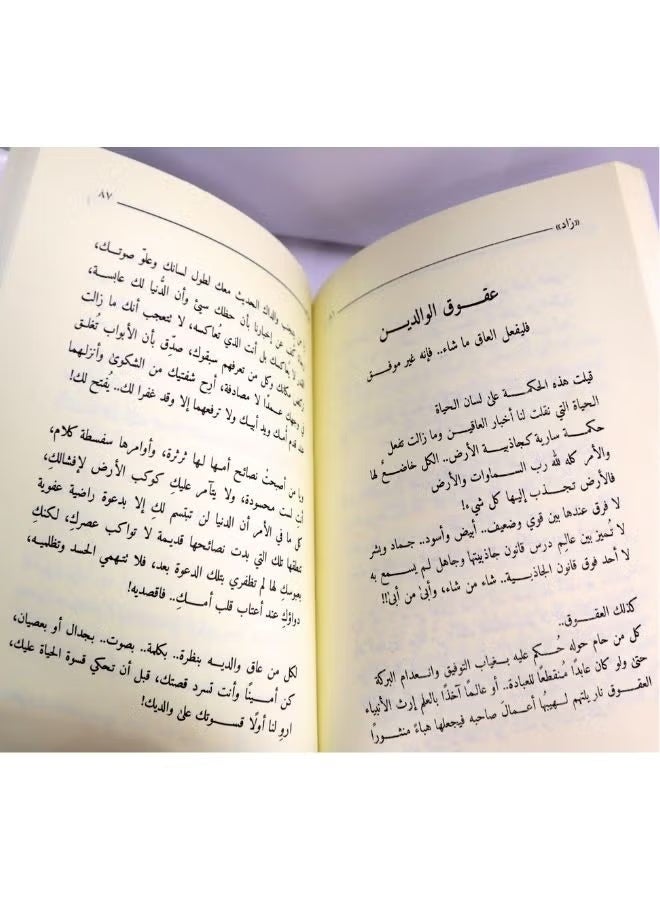 «زاد»
عقوق الوالدين
فليفعل العاق ما شاء.. فإنه غير موفق
قيلت هذه الحكمة على لسان الحياة
الحياة التي نقلت لنا أخبار العاقين وما زالت تفعل
حكمة سارية كجاذبية الأرض.. الكل خاضعٌ لها
والأمر كله لله رب السماوات والأرض
فالأرض تجذب إليها كل شيء!
لا فرق عندها بين قوي وضعيف.. أبيض وأسود.. جماد وبشر
لا تُميز بين عالِم درس قانون جاذبيتها وجاهل لم يسمع به
لا أحد فوق قانون الجاذبية.. شاء من شاء، وأبىٰ من أبىٰ!!
كذلك العقوق..
كل من حام حوله حُكِم عليه بغياب التوفيق وانعدام البركة
حتىٰ ولو كان عابدًا مُنقطعًا للعبادة.. أو عالمًا آخذًا بالعلم إرثِ الأنبياء
العقوق نار يلتهم لهيبُها أعمالَ صاحبه فيجعلها هباءً منثورًا
٨٧
والداك الحديث معك لطول لسانك وعلوّ صوتك،
كُفّ عن إخبارنا بأن حظك سيئ وأن الدُّنيا لك عابسة،
بل أنت الذي تُعاكسه، لا تتعجب أنك ما زالت
مكانك وكل من تعرفهم سبقوك، صدّق بأن الأبواب تُغلق
في وجهك عمدًا لا مصادفة، أرح شفتيك من الشكوىٰ وأنزلهما
عند قدم أمك ويد أبيك ولا ترفعهما إلا وقد غفرا لك.. يُفتح لك!
ويا من أصبحتْ نصائح أمها لها ثرثرة، وأوامرها سفسطة كلام،
أنتِ لست محسودة، ولا يتآمر عليكِ كوكب الأرض لإفشالكِ،
كل ما في الأمر أن الدنيا لن تبتسم لكِ إلا بدعوة راضية عفوية
تلك التي بدت نصائحها قديمة لا تواكب عصركِ، لكنكِ
لم تظفري بتلك الدعوة بعد، فلا تتهمي الحسد وتظلميه،
دواؤكِ عند أعتاب قلب أمكِ.. فاقصديه!
لكل من عاق والديه بنظرة.. بكلمة.. بصوت.. بجدال أو بعصيان،
كن أمينًا وأنت تسرد قصتك، قبل أن تحكي قسوة الحياة عليك،
اروِ لنا أولًا قسوتك علىٰ والديك!